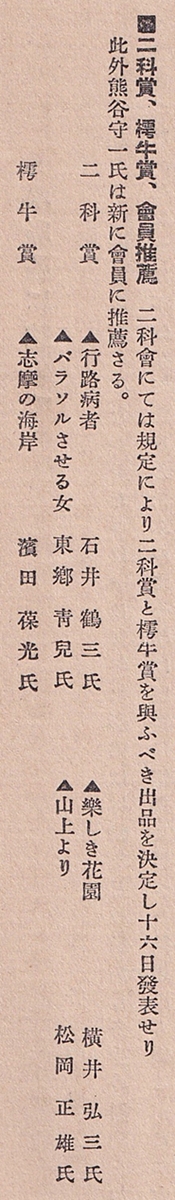 ■二科賞、樗牛賞、會員推薦 二科會にては規定により二科賞と樗牛賞を與ふべき出品を決定し十六日發表せり
此外熊谷守一氏は新に會員に推薦さる。
二科賞 ▲行路病者 石井鶴三氏 ▲樂しき花園 横井弘三氏
▲パラソルさせる女 東郷靑兒氏 ▲山上より 松岡正雄氏
樗牛賞 ▲志摩の海岸 濱田葆光氏